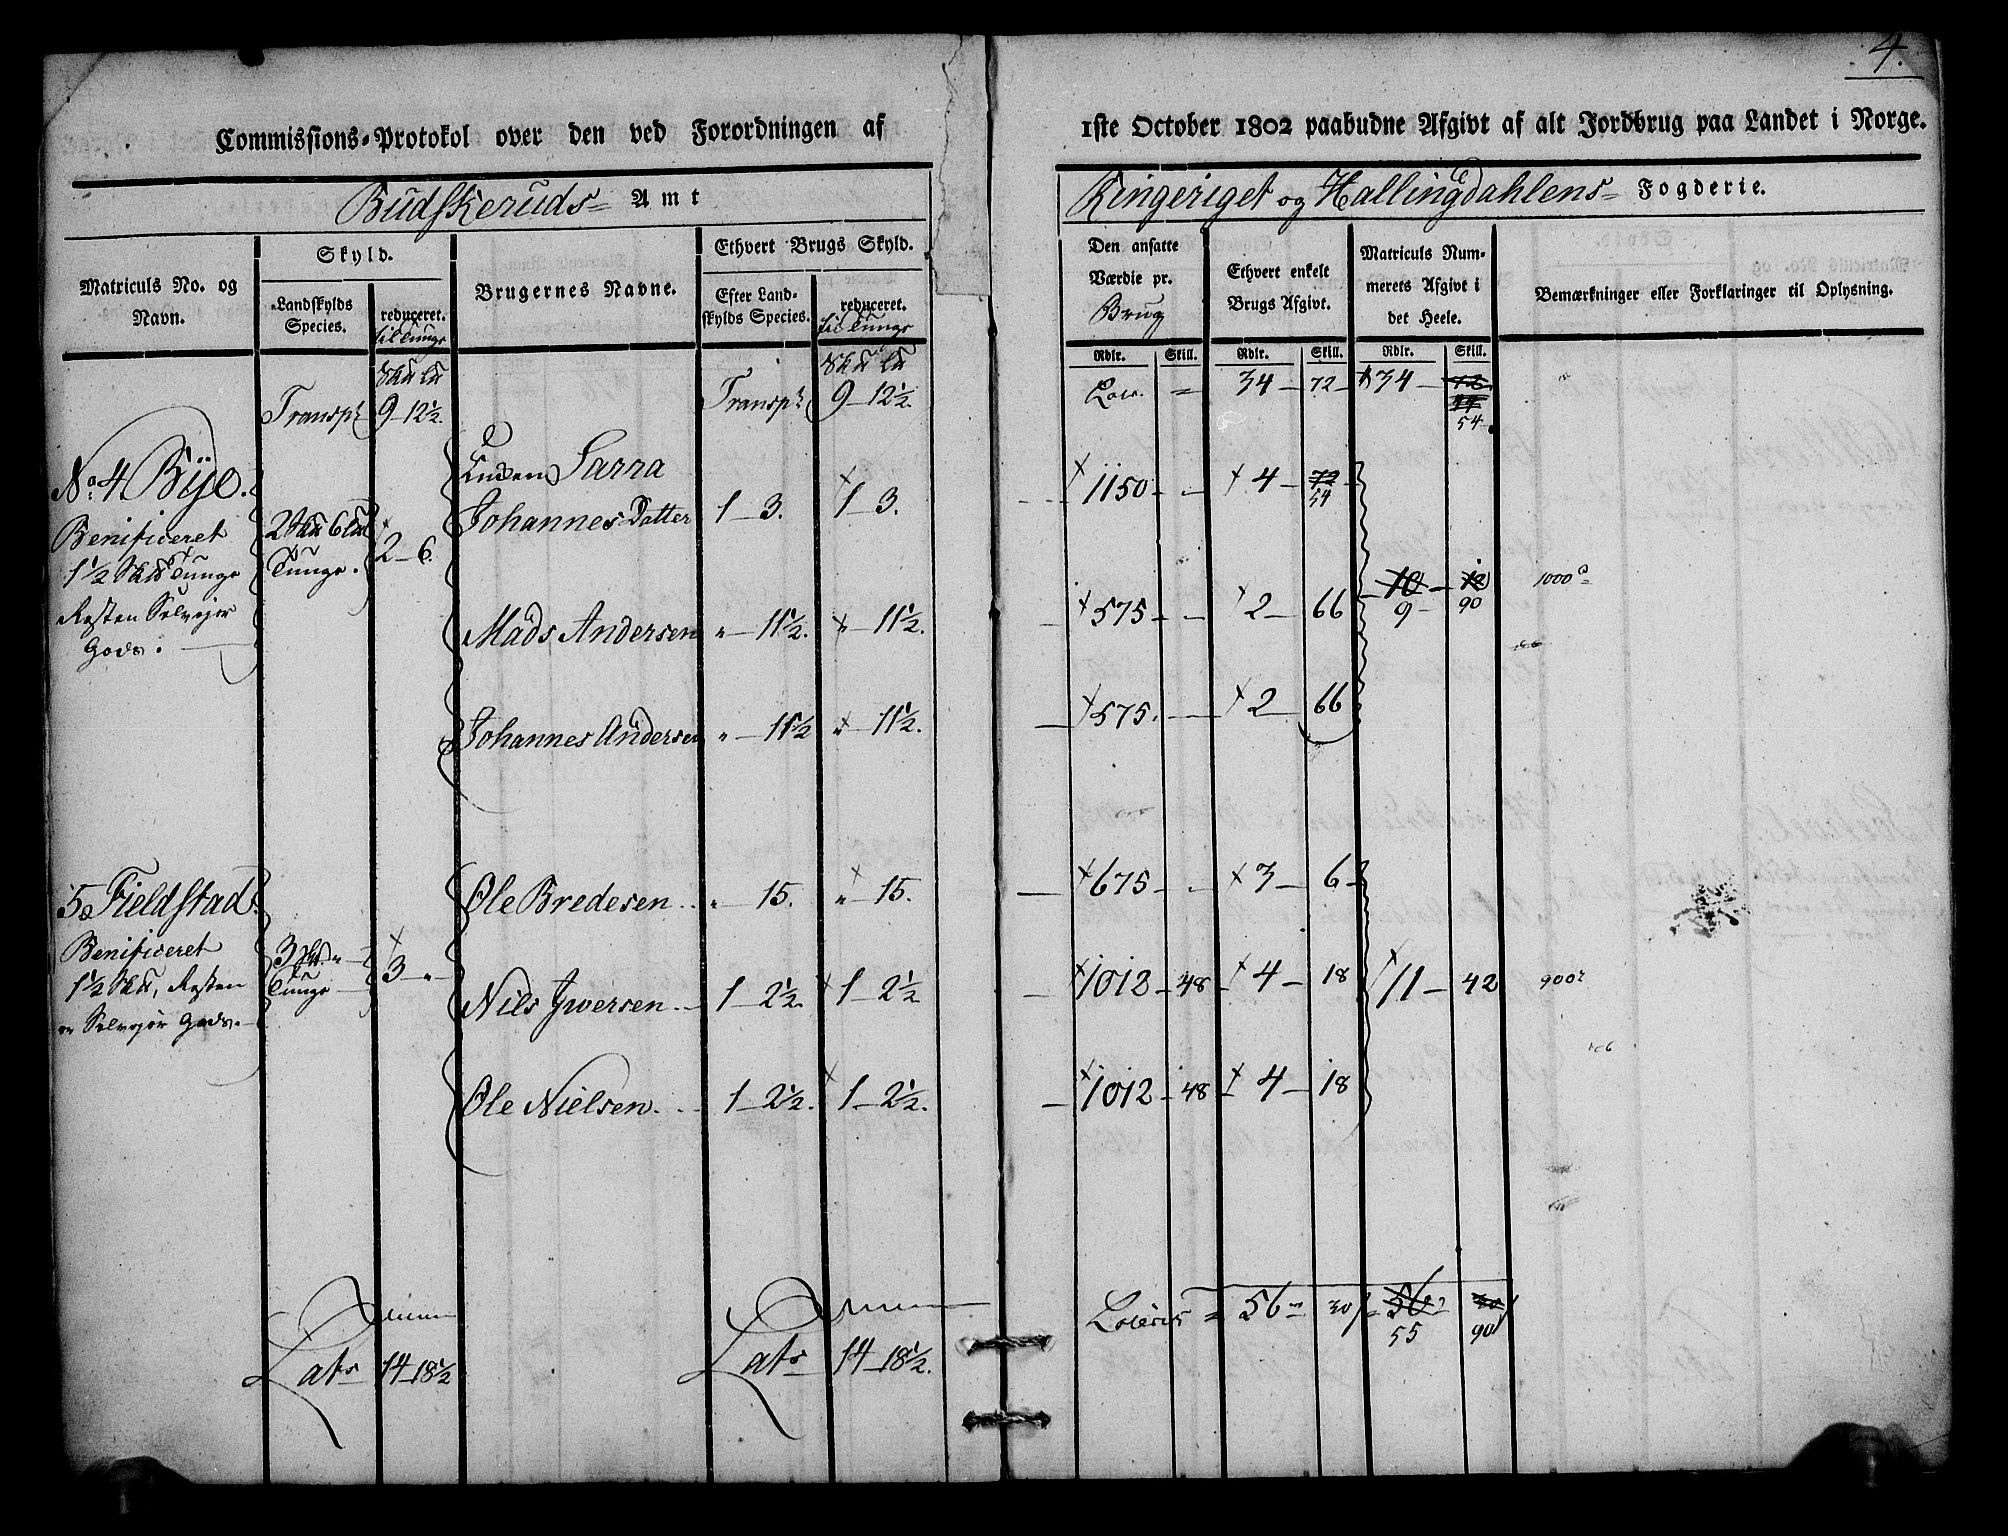 4.
Commissions-Protokol over den ved Forordningen af 1ste October 1802 paabudne Afgivt af alt Jordbrug paa Landet i Norge.
Budskeruds Amt
Ringeriget og Hallingdahlens Fogderie.
Matriculs No. og Navn.
Skyld.
Landskylds Species.
reduceret. til Tunge
Brugernes Navne.
Ethvert Brugs Skyld.
Efter Landskylds Species.
reduceret. til Tunge
Den ansatte Værdie pr. Brug
Ethvert enkelt Brugs Afgivt.
Matriculs Nummerets Afgivt i det Heele.
Bemærkninger eller Forklaringer til Oplysning.
Rdlr. Skill. Rdlr. Skill. Rdlr. Skill.
Transpt 9-12½. Transpt 9-12½. 34-72 34- 72 54
No. 4 Bÿe.
Benificeret
1½ Skd Tunge
Resten Selvejer
Gods.
2 Skd 6 Ld
Tunge.
2-6.
Enken Sarra
Johannes Datter 1-3. 1-3. 1150 - - 4 - 72 54
Mads Andersen " - 11½. " - 11½. 575 - - 2 - 66 10 - 12 1000
9 - 90
Johannes Andersen " - 11½ " - 11½. 575. - 2 - 66
5 Fieldstad.
Benificeret
1½ Skd, Resten
er Selvejer Gods.
3 Skd. "
Tunge
3 - "
Ole Bredesen " - 15. " - 15. 675 - - 3 - 6
Niels Iwersen 1-2½. 1-2½ 1012 - 48 4 - 18 11 - 42 900
Ole Nielsen. 1-2½. 1-2½. 1012 - 48 4 - 18
Lats 14-18½ Lats 14-18½. 56 30 56 30
55 90